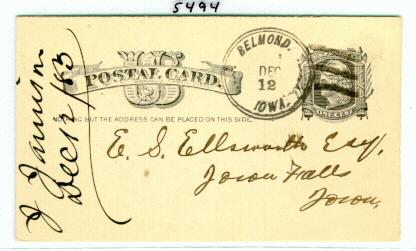 5494
US
POSTAL CARD.
NOTHING BUT THE ADDRESS CAN BE PLACED ON THIS SIDE.
BELMOND.
DEC
12
IOWA.
ONE CENT
J Jamison
Dec 12/83
E. S. Ellsworth Esq,
Iowa Falls
Iowa,